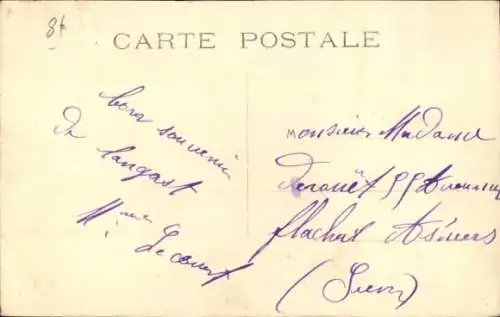 8f
CARTE POSTALE
bon souvenir
de Langast
Mme Lecouert
Monsieur Madame
Derouet 55 Avenue
flachat Asnieres
(Seine)